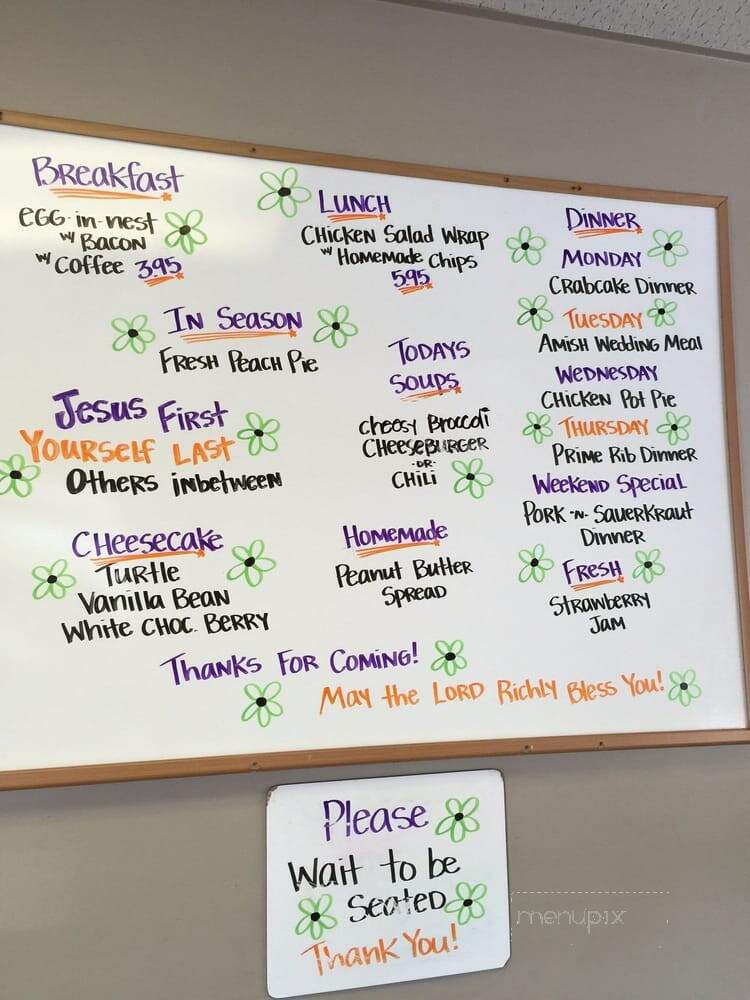 Breakfast
EGG-in-nest
w/ Bacon
w/ Coffee 3.95
Lunch
Chicken Salad Wrap
w/ Homemade Chips
5.95
In Season
Fresh Peach Pie
Jesus First
Yourself Last
Others inbetween
Todays
Soups
Cheesy Broccoli
Cheeseburger
-or-
Chili
Cheesecake
Turtle
Vanilla Bean
White Choc. Berry
Homemade
Peanut Butter
Spread
Dinner
Monday
Crabcake Dinner
Tuesday
Amish Wedding Meal
Wednesday
Chicken Pot Pie
Thursday
Prime Rib Dinner
Weekend Special
Pork -n- Sauerkraut
Dinner
Fresh
Strawberry
Jam
Thanks For Coming!
May the Lord Richly Bless You!
Please
Wait to be
Seated
Thank You!
menupix